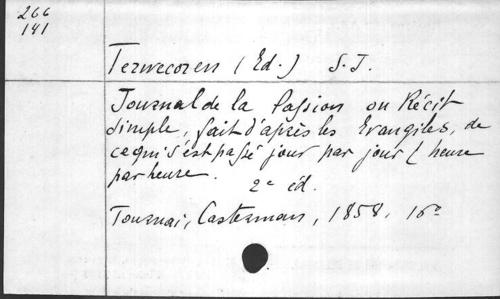 266
141
Terwecoren (Ed.) S.J.
Journal de la Passion ou Récit
simple, fait d'après les Evangiles, de
ce qui s'est passé jour par jour & heure
par heure. 2e éd.
Tournai, Casterman, 1858, 16o